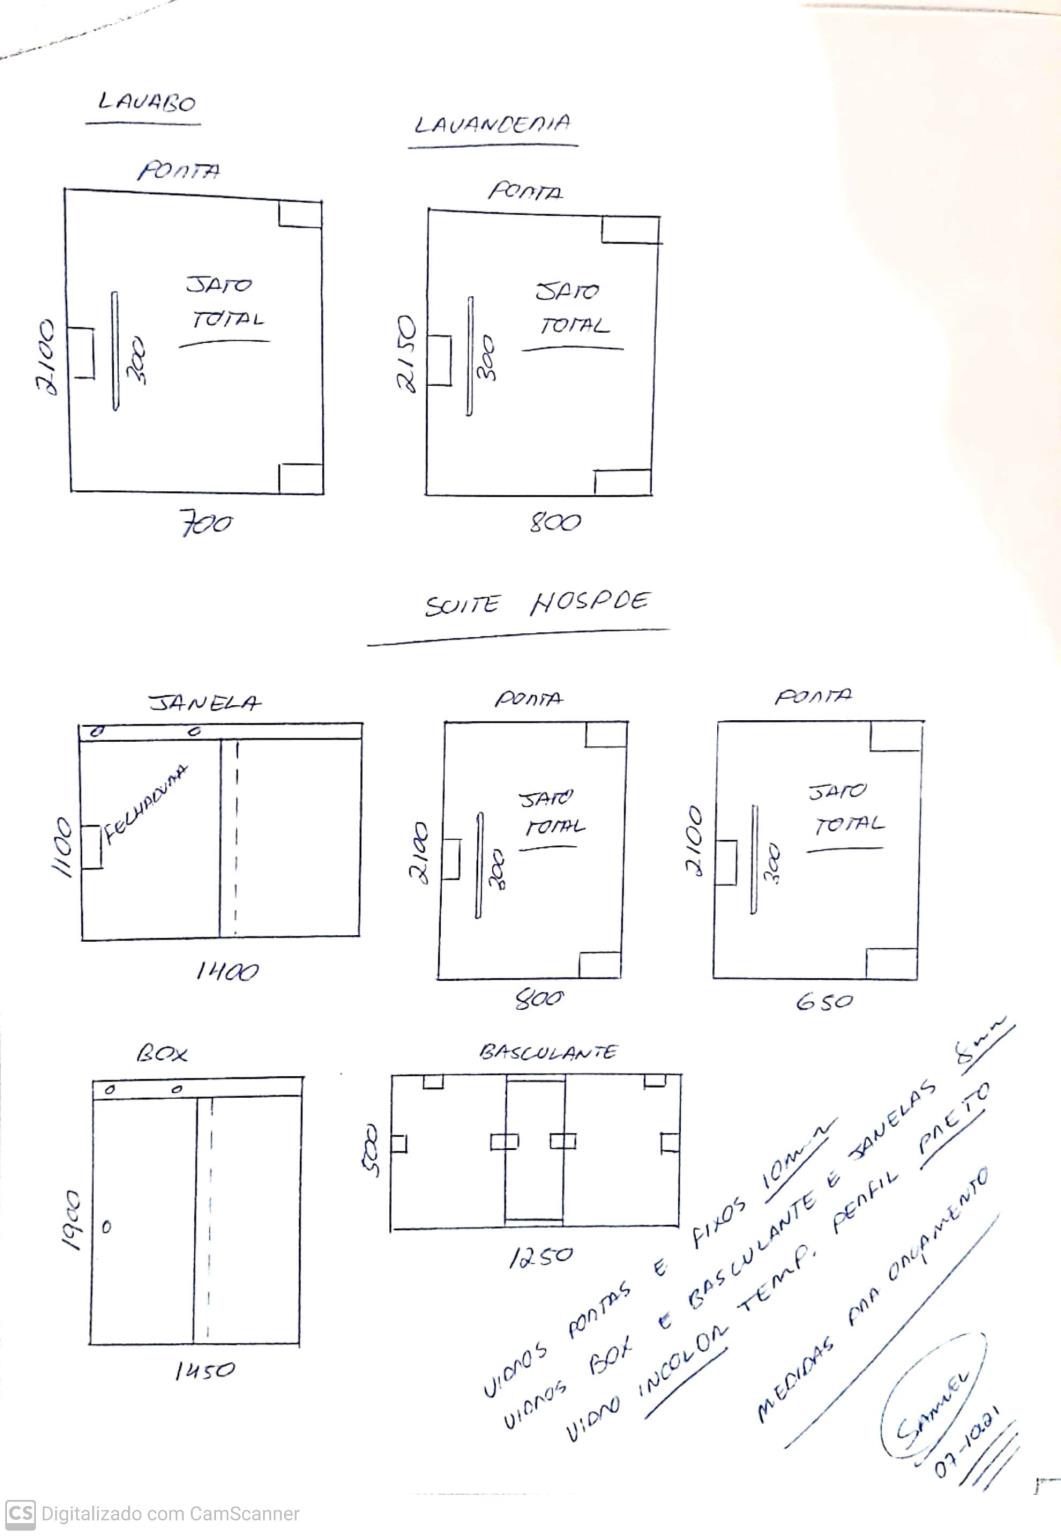 LAVABO
LAVANDERIA
PORTA
PORTA
JATO
TOTAL
2100
300
700
JATO
TOTAL
2150
300
800
SUITE HOSPDE
JANELA
PORTA
PORTA
FECHADURA
1100
1400
JATO
TOTAL
2100
300
800
JATO
TOTAL
2100
300
650
BOX
BASCULANTE
1900
1450
500
1250
VIDROS PORTAS E FIXOS 10mm
VIDROS BOX E BASCULANTE E JANELAS 8mm
VIDRO INCOLOR TEMP. PERFIL PRETO
MEDIDAS PARA ORÇAMENTO
SAMUEL
07-10.21
CS Digitalizado com CamScanner